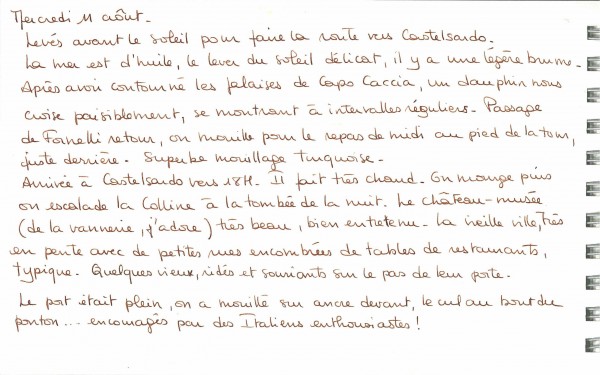 Mercredi 11 août.
Levés avant le soleil pour faire la route vers Castelsardo.
La mer est d'huile, le lever du soleil délicat, il y a une légère brume.
Après avoir contourné les falaises de Capo Caccia, un dauphin nous
croise paisiblement, se montrant à intervalles réguliers. Passage
de Fornelli retour, on mouille pour le repas de midi au pied de la tour,
juste derrière. Superbe mouillage turquoise.
Arrivée à Castelsardo vers 18H. Il fait très chaud. On mange puis
on escalade la Colline à la tombée de la nuit. Le château-musée
(de la vannerie, j'adore) très beau, bien entretenu. La vieille ville, très
en pente avec de petites rues encombrées de tables de restaurants,
typique. Quelques vieux, ridés et souriants sur le pas de leur porte.
Le port était plein, on a mouillé sur ancre devant, le cul au bout du
ponton... encouragés par des Italiens enthousiastes !